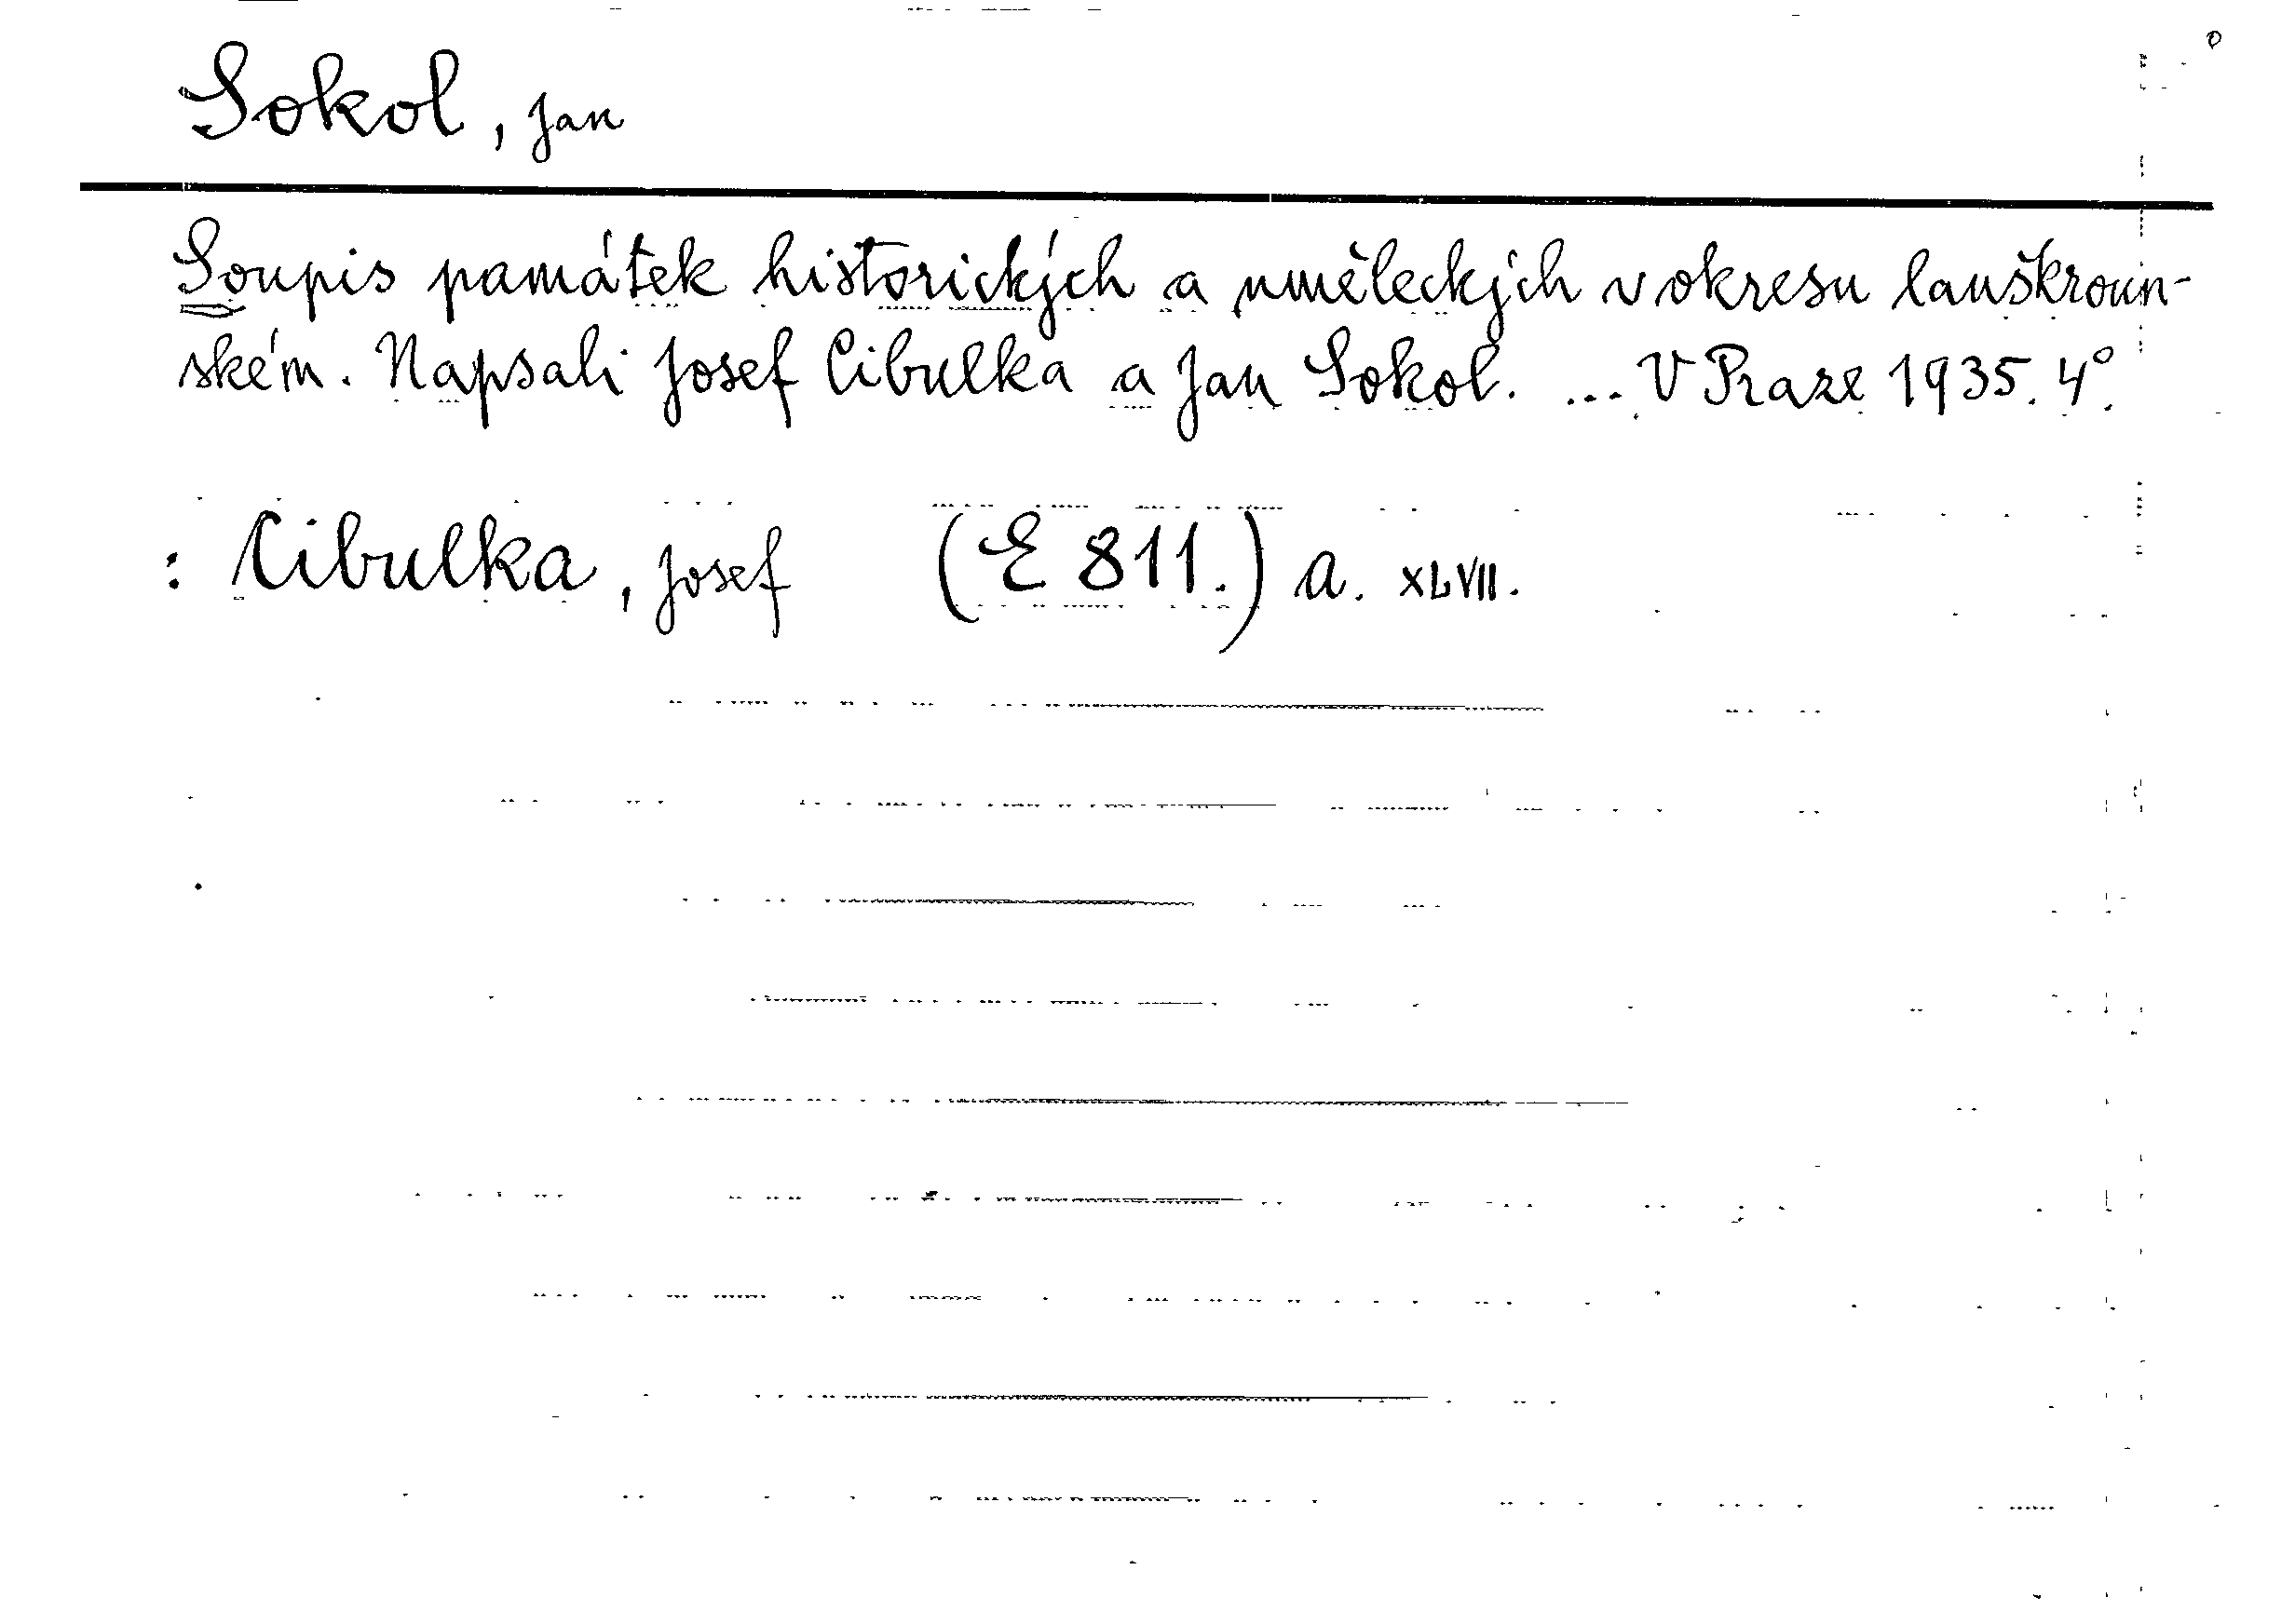 Sokol, Jan
Soupis památek historických a uměleckých v okresu lanškroun-
ském. Napsali Josef Cibulka a Jan Sokol. ... V Praze 1935. 4°.
: Cibulka, Josef (E 811.) a. XLVII.